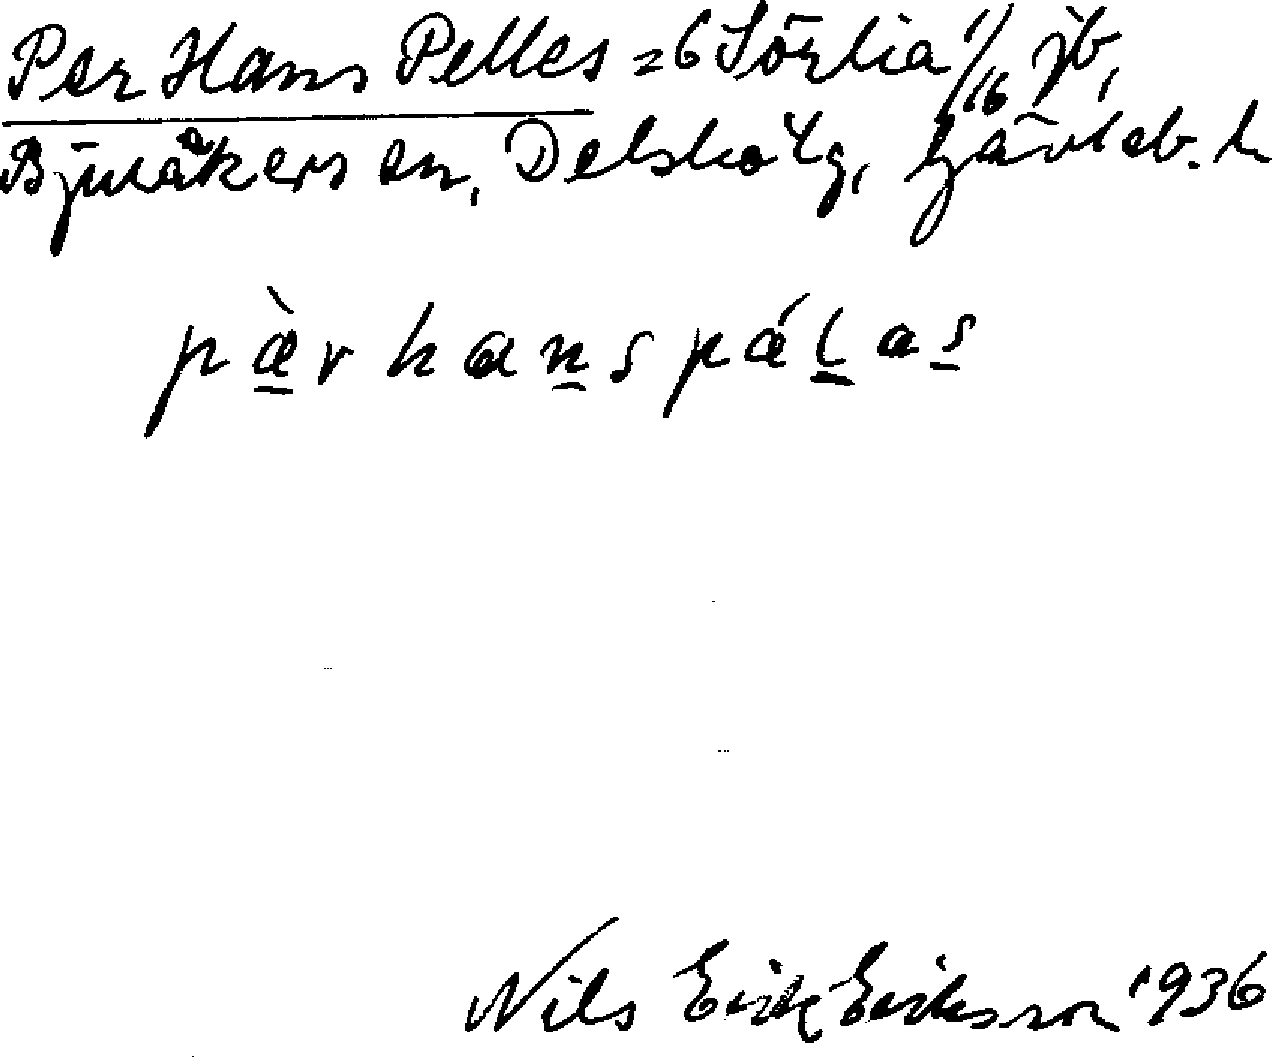 Per Hans Pelles = 6 Sörlia 1/16 jb,
Bjuråkers sn, Delsbo tg, Gävleb. l
pàrhanspálas
Nils Erik Eriksson 1936